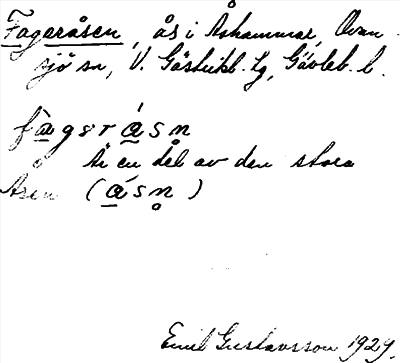 Fageråsen, ås i Åshammar, Ovan-
sjö sn, V. Gästrikl. tg, Gävleb. l.
fàgsrásn
Är en del av den stora
Åsen (ásn)
Emil Gustavsson 1929.